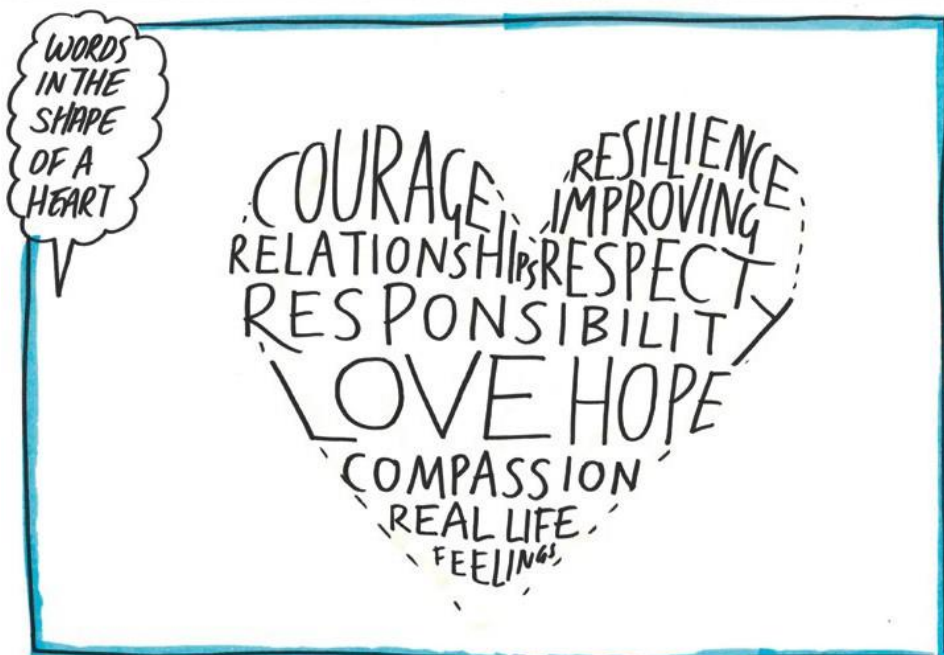 WORDS
IN THE
SHAPE
OF A
HEART
COURAGE
RESILIENCE
IMPROVING
RELATIONSHIPS RESPECT
RESPONSIBILITY
LOVE HOPE
COMPASSION
REAL LIFE
FEELINGS